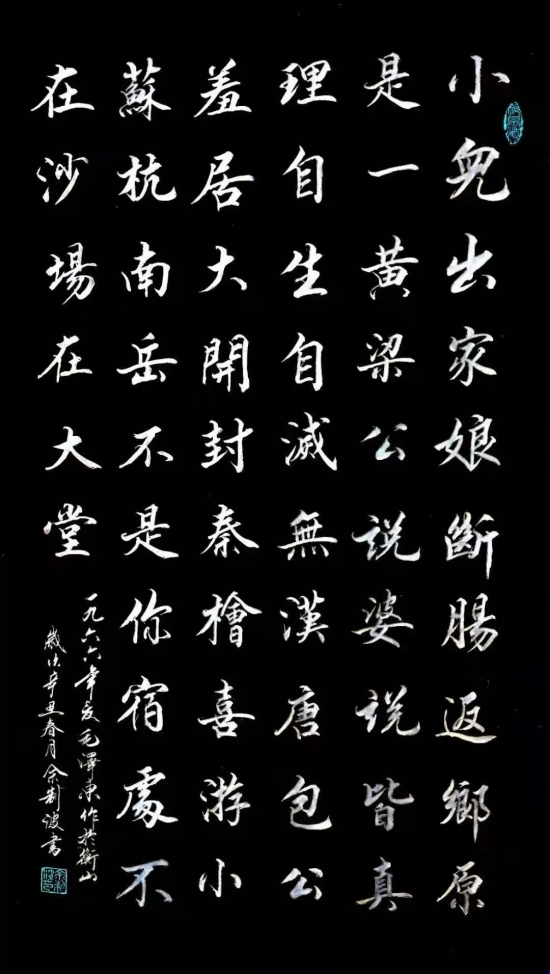 小兒出家娘斷腸返鄉原
是一黃梁公說婆說皆真
理自生自滅無漢唐包公
羞居大開封秦檜喜游小
蘇杭南岳不是你宿處不
在沙場在大堂
一九六六年夏毛澤東作於衡山
歲次辛丑春月制波書